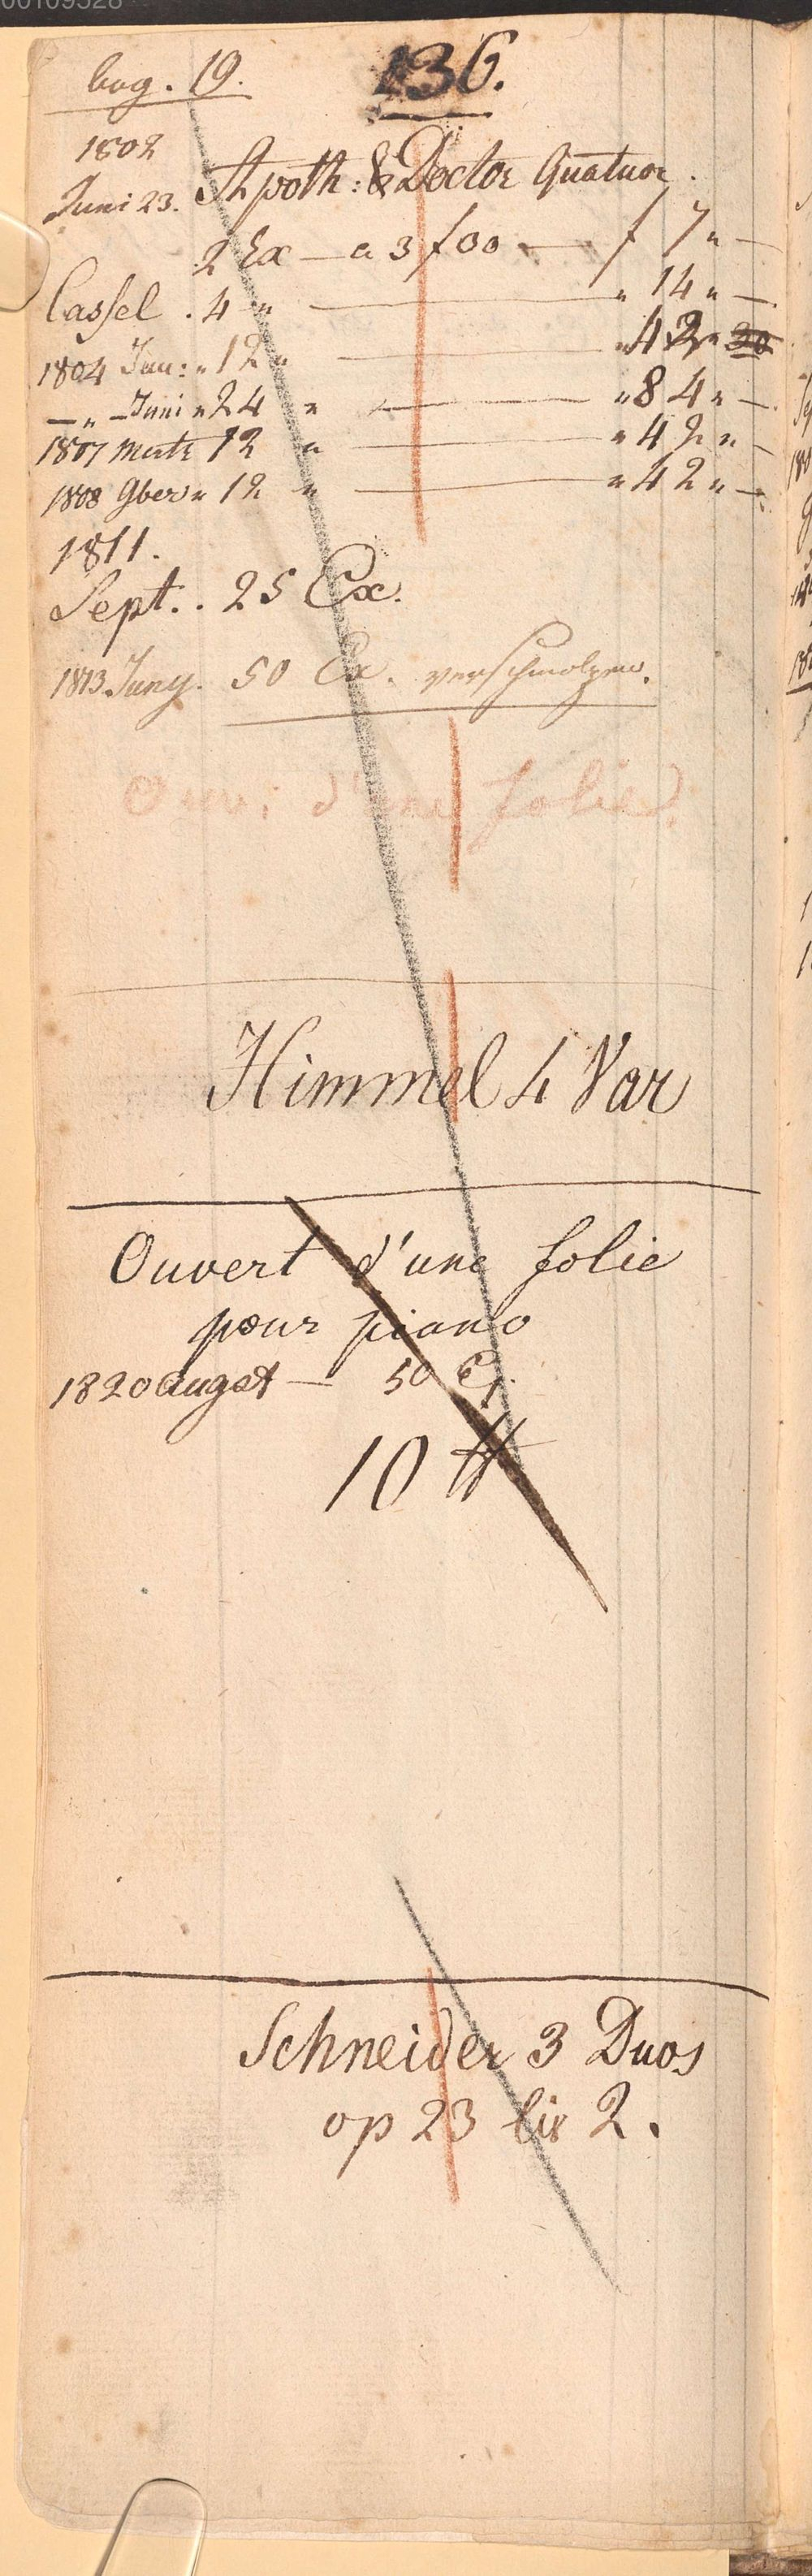 bog. 19. 136.
1802
Juni 23. Apoth: & Doctor Quatuor.
2 Ex — a 3 f 00 — f 7 " —
Cassel . 4 " — " 14 " —
1804 Jan: " 12 " — " 42 " 30
— " — Juni " 24 " — " 84 " —
1807 Mertz 12 " — " 42 " —
1808 9ber " 12 " — " 42 " —
1811.
Sept. . 25 Ex.
1813 Juny. 50 Ex. verschmolzen.
Ouv: d'une folie.
Himmel 4 Var
Ouvert d'une folie
pour piano
1820 August — 50 E.
10 tt
Schneider 3 Duos
op 23 liv 2.